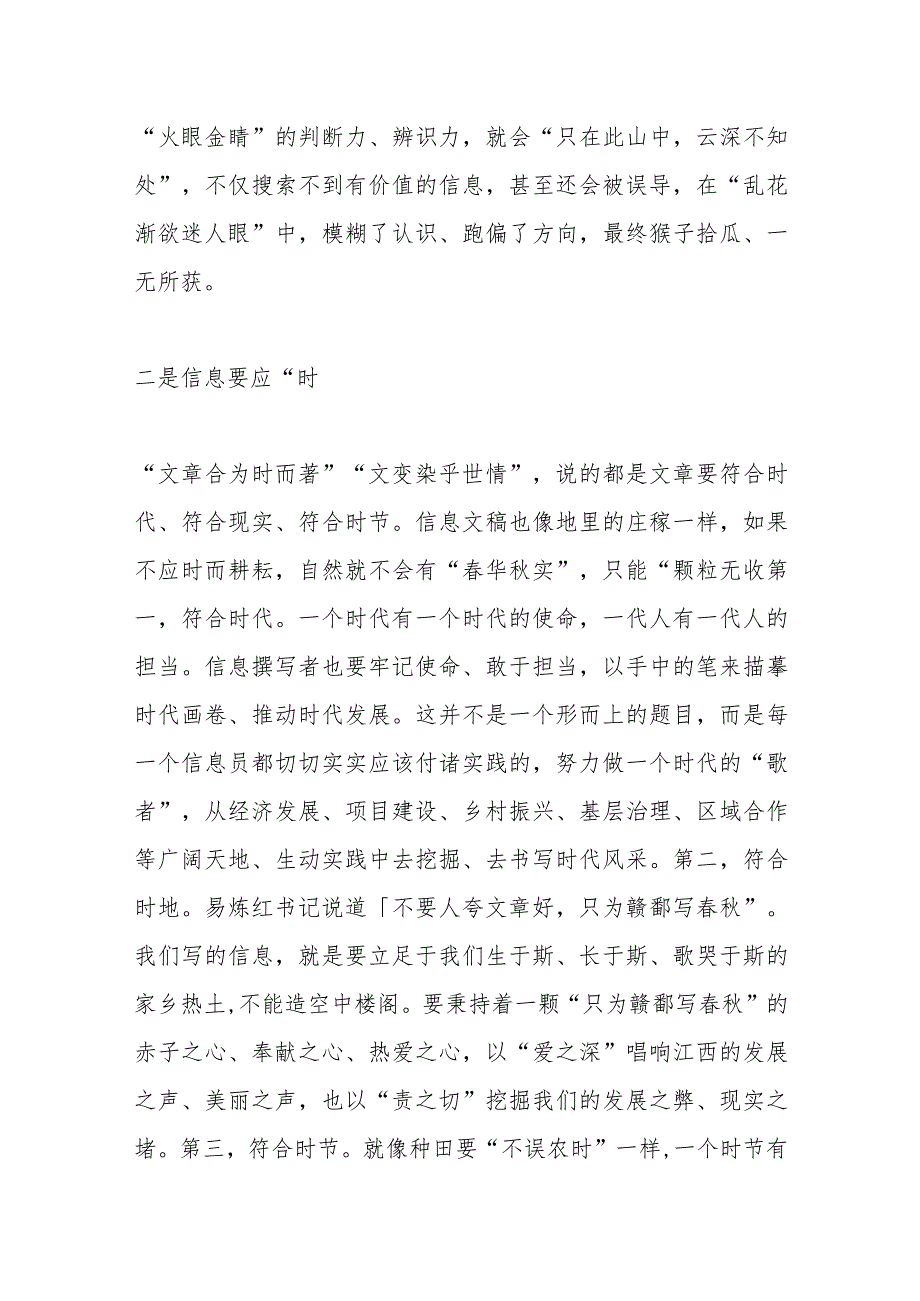 “火眼金睛”的判断力、辨识力，就会“只在此山中，云深不知
处”，不仅搜索不到有价值的信息，甚至还会被误导，在“乱花
渐欲迷人眼”中，模糊了认识、跑偏了方向，最终猴子拾瓜、一
无所获。
二是信息要应“时
“文章合为时而著”“文变染乎世情”，说的都是文章要符合时
代、符合现实、符合时节。信息文稿也像地里的庄稼一样，如果
不应时而耕耘，自然就不会有“春华秋实”，只能“颗粒无收第
一，符合时代。一个时代有一个时代的使命，一代人有一代人的
担当。信息撰写者也要牢记使命、敢于担当，以手中的笔来描摹
时代画卷、推动时代发展。这并不是一个形而上的题目，而是每
一个信息员都切切实实应该付诸实践的，努力做一个时代的“歌
者”，从经济发展、项目建设、乡村振兴、基层治理、区域合作
等广阔天地、生动实践中去挖掘、去书写时代风采。第二，符合
时地。易炼红书记说道「不要人夸文章好，只为赣鄱写春秋”。
我们写的信息，就是要立足于我们生于斯、长于斯、歌哭于斯的
家乡热土,不能造空中楼阁。要秉持着一颗“只为赣鄱写春秋”的
赤子之心、奉献之心、热爱之心，以“爱之深”唱响江西的发展
之声、美丽之声，也以“责之切”挖掘我们的发展之弊、现实之
堵。第三，符合时节。就像种田要“不误农时”一样,一个时节有